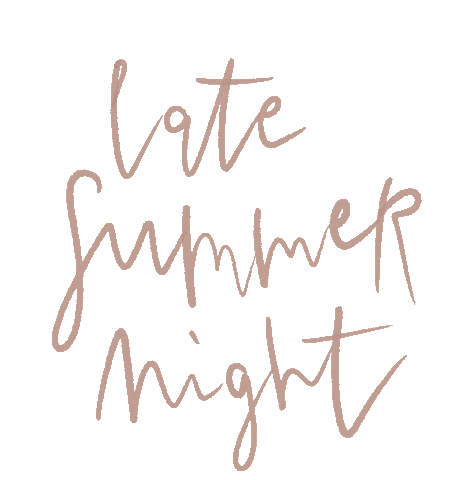 late
summer
night